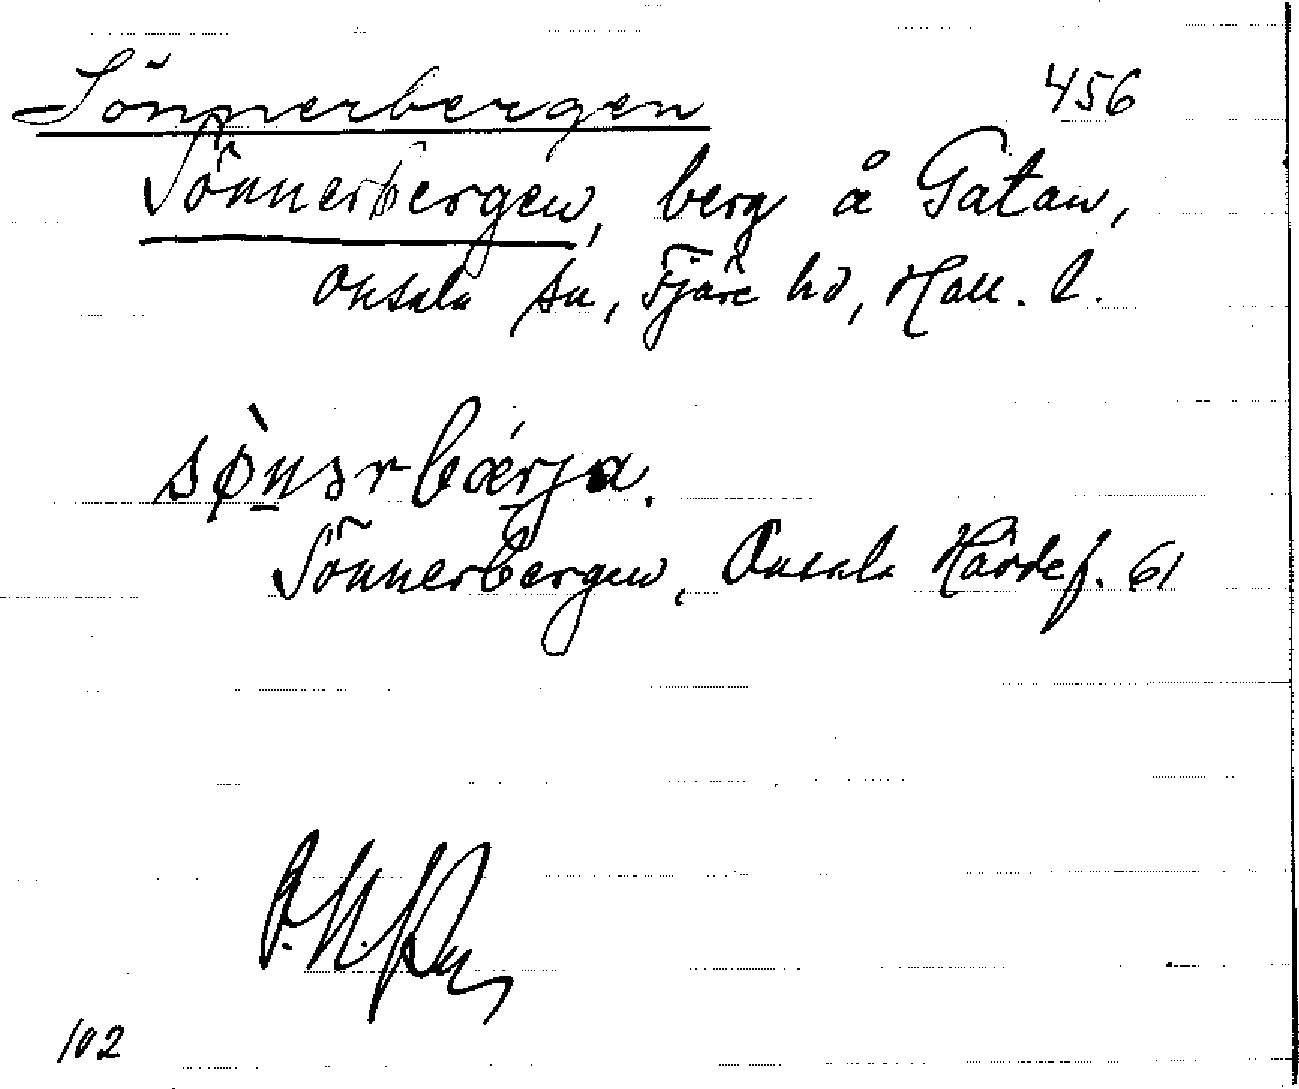 Sönnerbergen 456
Sönnerbergen, berg å Gatan,
Onsala sn, Fjäre hd, Hall. l.
sø̀nərbǽrja.
Sönnerbergen, Onsala Härdef. 61
102